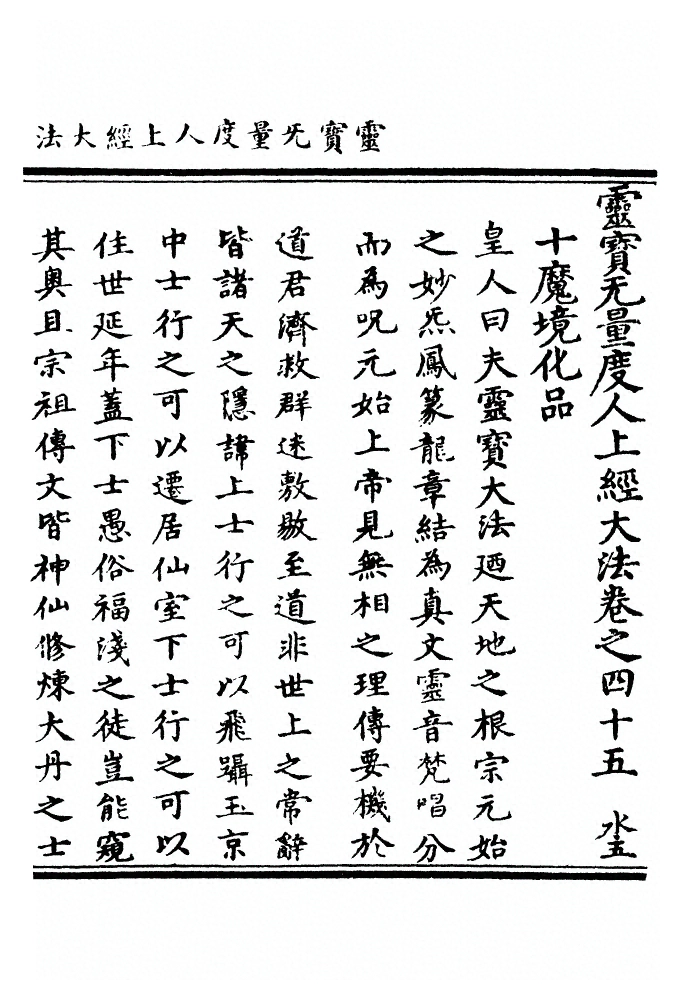 靈寶旡量度人上經大法
靈寶无量度人上經大法卷之四十五 水五
十魔境化品
皇人曰夫靈寶大法廼天地之根宗元始
之妙炁鳳篆龍章結為真文靈音梵唱分
而為呪元始上帝見無相之理傳要機於
道君濟救群迷敷敭至道非世上之常辭
皆諸天之隱諱上士行之可以飛躡玉京
中士行之可以遷居仙室下士行之可以
住世延年蓋下士愚俗福淺之徒豈能窺
其奥且宗祖傳文皆神仙修煉大丹之士